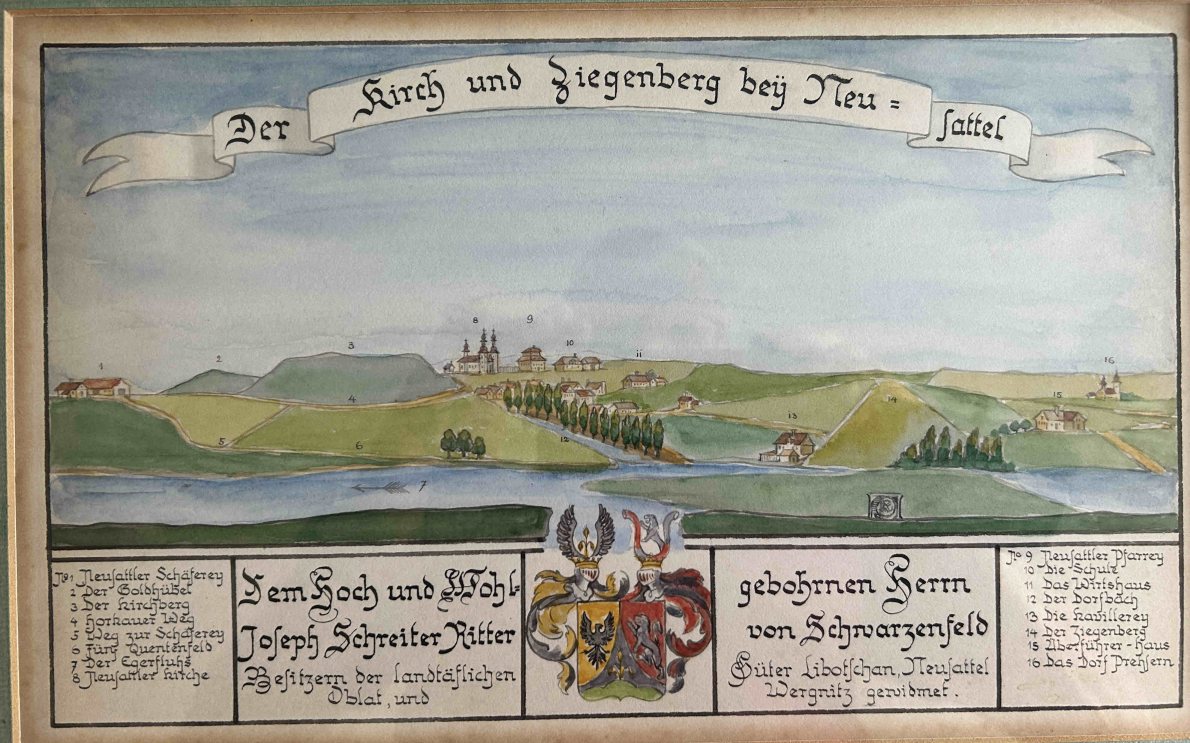 Der Kirch und Ziegenberg beÿ Neu =
sattel
8
9
3
10
2
11
1
16
4
15
14
13
5
6
12
7
No 1 Neusattler Schäferey
2 Der Goldhübel
3 Der Kirchberg
4 Horkauer Weg
5 Weg zur Schäferey
6 Quentenfeld
7 Der Egerfluhs
8 Neusattler Kirche
Dem Hoch und Wohl-
Joseph Schreiter Ritter
Besitzern der landtäflichen
Oblat, und
gebohrnen Herrn
von Schwarzenfeld
Güter Libotschan, Neusattel
Wergnitz gewidmet.
No 9 Neusattler Pfarrey
10 Die Schule
11 Das Wirtshaus
12 Der Dorfbach
13 Die Kavillerey
14 Der Ziegenberg
15 Überführer-Haus
16 Das Dorf Prehsern